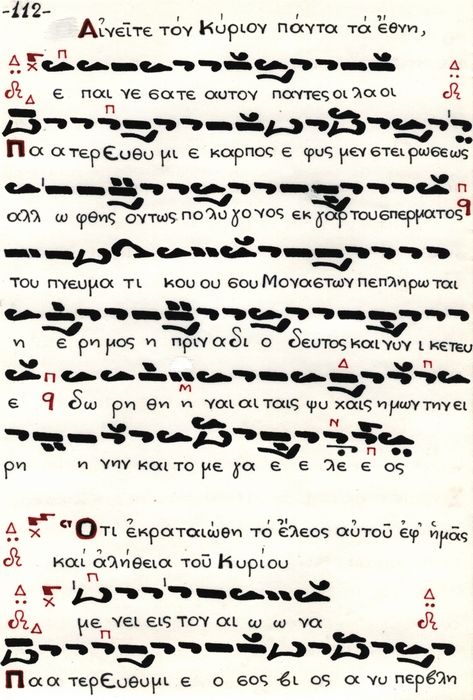 -112-
Αἰνεῖτε τόν Κύριον πάντα τά ἔθνη,
ε παι νε σατε αυτον παντες οι λαοι
Πα α τερ Ευθυ μι ε καρπος ε φυς μεν στει ρωσεως
αλλ ω φθης οντως πο λυ γο νος εκ γαρ του σπερματος
του πνευμα τι κου ου σου Μοναστων πεπληρω ται
η ε ρη μος η πριν α δι ο δευτος και νυν ι κετευ
ε δω ρη θη ναι αι ταις ψυ χαις ημων την ει
ρη η νην και το με γα ε ε λε ε ος
στ Ὅτι ἐκραταιώθη τό ἔλεος αὐτοῦ ἐφ' ἡμᾶς
καί ἀλήθεια τοῦ Κυρίου
με νει εις τον αι ω ω να
Πα α τερ Ευθυμι ε ο σος βι ος α νυ περβλη